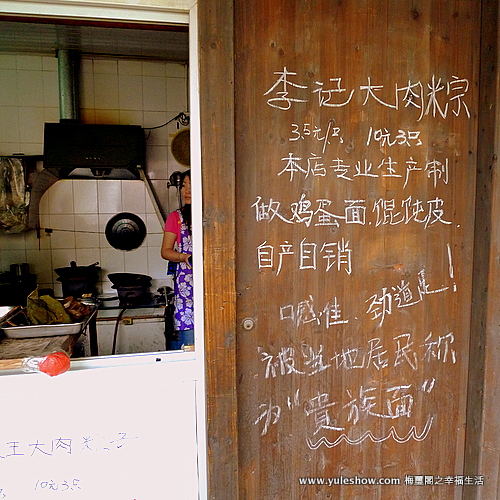 李记大肉粽
3.5元/只 10元3只
本店专业生产制
做鸡蛋面.馄饨皮.
自产自销
口感佳 劲道足!
被当地居民称
为"贵族面"
王大肉粽子
10元3只
www.yuleshow.com 梅薑閣之幸福生活